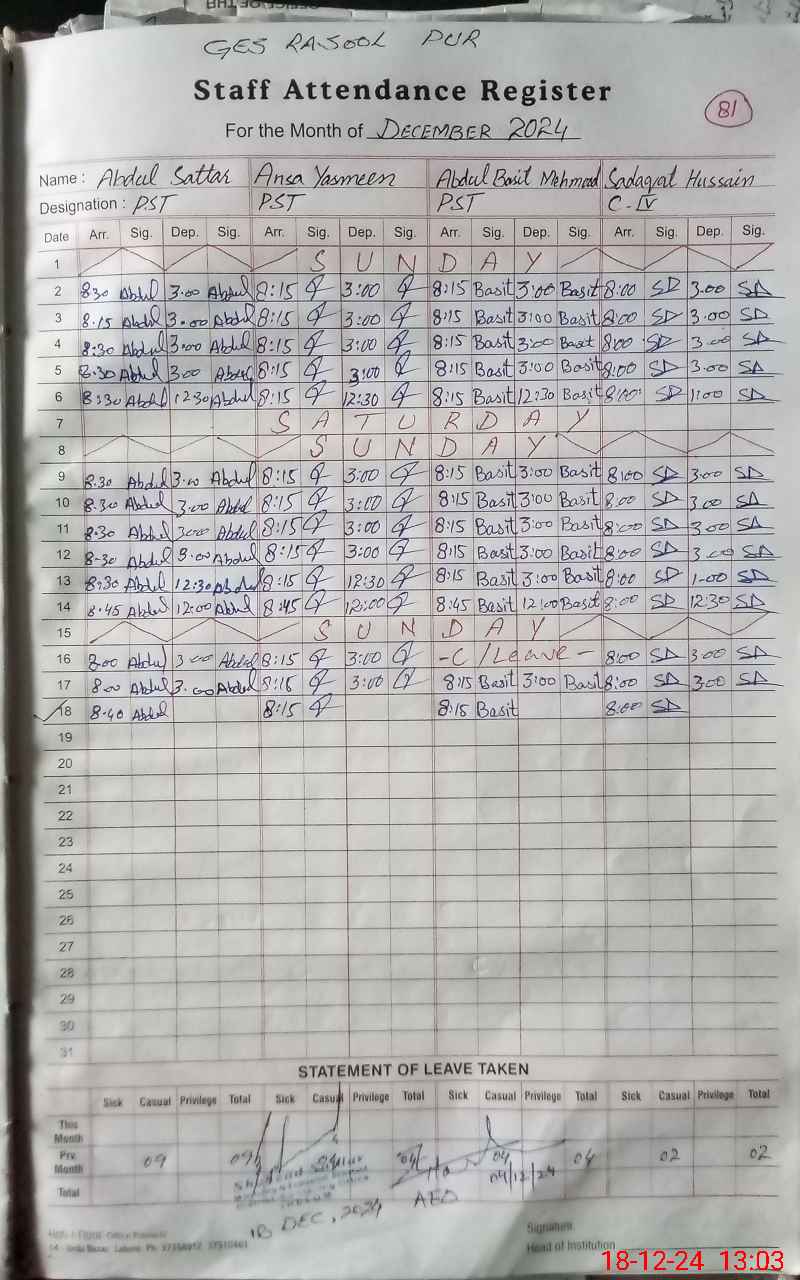 GES RASOOL PUR
Staff Attendance Register
81
For the Month of DECEMBER 2024
Name : Abdul Sattar Ansa Yasmeen Abdul Basit Mehmood Sadaqat Hussain
Designation : PST PST PST C-IV
Date Arr. Sig. Dep. Sig. Arr. Sig. Dep. Sig. Arr. Sig. Dep. Sig. Arr. Sig. Dep. Sig.
1 S U N D A Y
2 8:30 Abdul 3:00 Abdul 8:15 3:00 8:15 Basit 3:00 Basit 8:00 SD 3:00 SD
3 8:15 Abdul 3:00 Abdul 8:15 3:00 8:15 Basit 3:00 Basit 8:00 SD 3:00 SD
4 8:30 Abdul 3:00 Abdul 8:15 3:00 8:15 Basit 3:00 Basit 8:00 SD 3:00 SD
5 8:30 Abdul 3:00 Abdul 8:15 3:00 8:15 Basit 3:00 Basit 8:00 SD 3:00 SD
6 8:30 Abdul 12:30 Abdul 8:15 12:30 8:15 Basit 12:30 Basit 8:00 SD 1:00 SD
7 S A T U R D A Y
8 S U N D A Y
9 8:30 Abdul 3:00 Abdul 8:15 3:00 8:15 Basit 3:00 Basit 8:00 SD 3:00 SD
10 8:30 Abdul 3:00 Abdul 8:15 3:00 8:15 Basit 3:00 Basit 8:00 SD 3:00 SD
11 8:30 Abdul 3:00 Abdul 8:15 3:00 8:15 Basit 3:00 Basit 8:00 SD 3:00 SD
12 8:30 Abdul 3:00 Abdul 8:15 3:00 8:15 Basit 3:00 Basit 8:00 SD 3:00 SD
13 8:30 Abdul 12:30 Abdul 8:15 12:30 8:15 Basit 3:00 Basit 8:00 SD 1:00 SD
14 8:45 Abdul 12:00 Abdul 8:45 12:00 8:45 Basit 12:00 Basit 8:00 SD 12:30 SD
15 S U N D A Y
16 8:00 Abdul 3:00 Abdul 8:15 3:00 -C/Leave- 8:00 SD 3:00 SD
17 8:00 Abdul 3:00 Abdul 8:15 3:00 8:15 Basit 3:00 Basit 8:00 SD 3:00 SD
18 8:40 Abdul 8:15 8:15 Basit 8:00 SD
19
20
21
22
23
24
25
26
27
28
29
30
31
STATEMENT OF LEAVE TAKEN
Sick Casual Privilege Total Sick Casual Privilege Total Sick Casual Privilege Total Sick Casual Privilege Total
This Month
Prv. Month 09 09 04 04 04 02 02
04/12/24
Total
AEO
18 DEC, 2024
Signature
Head of Institution
18-12-24 13:03